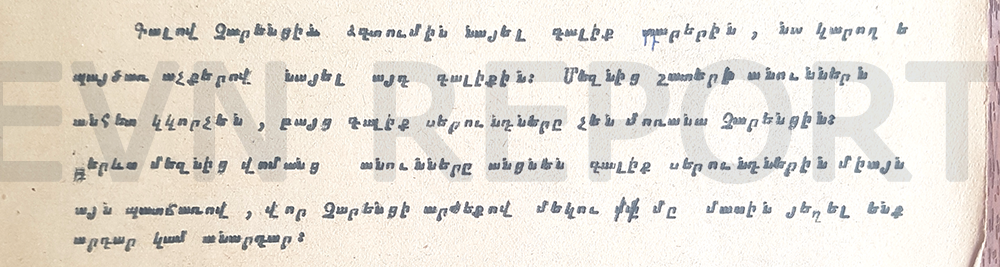 Գալով Չարենցին ձգտումին նայել գալիք դարերին, նա կարող է
պայծառ աչքերով նայել այդ գալիքին: Մեզնից շատերի անունները
անհետ կկորչեն, բայց գալիք սերունդները չեն մոռանա Չարենցին:
Գերևս մեզնից ոմանց անունները անցնեն գալիք սերունդներին միայն
այն պատճառով, որ Չարենցի արժեքով մեկու մը մասին յեղել ենք
արդար կամ անարդար:
EVN REPORT